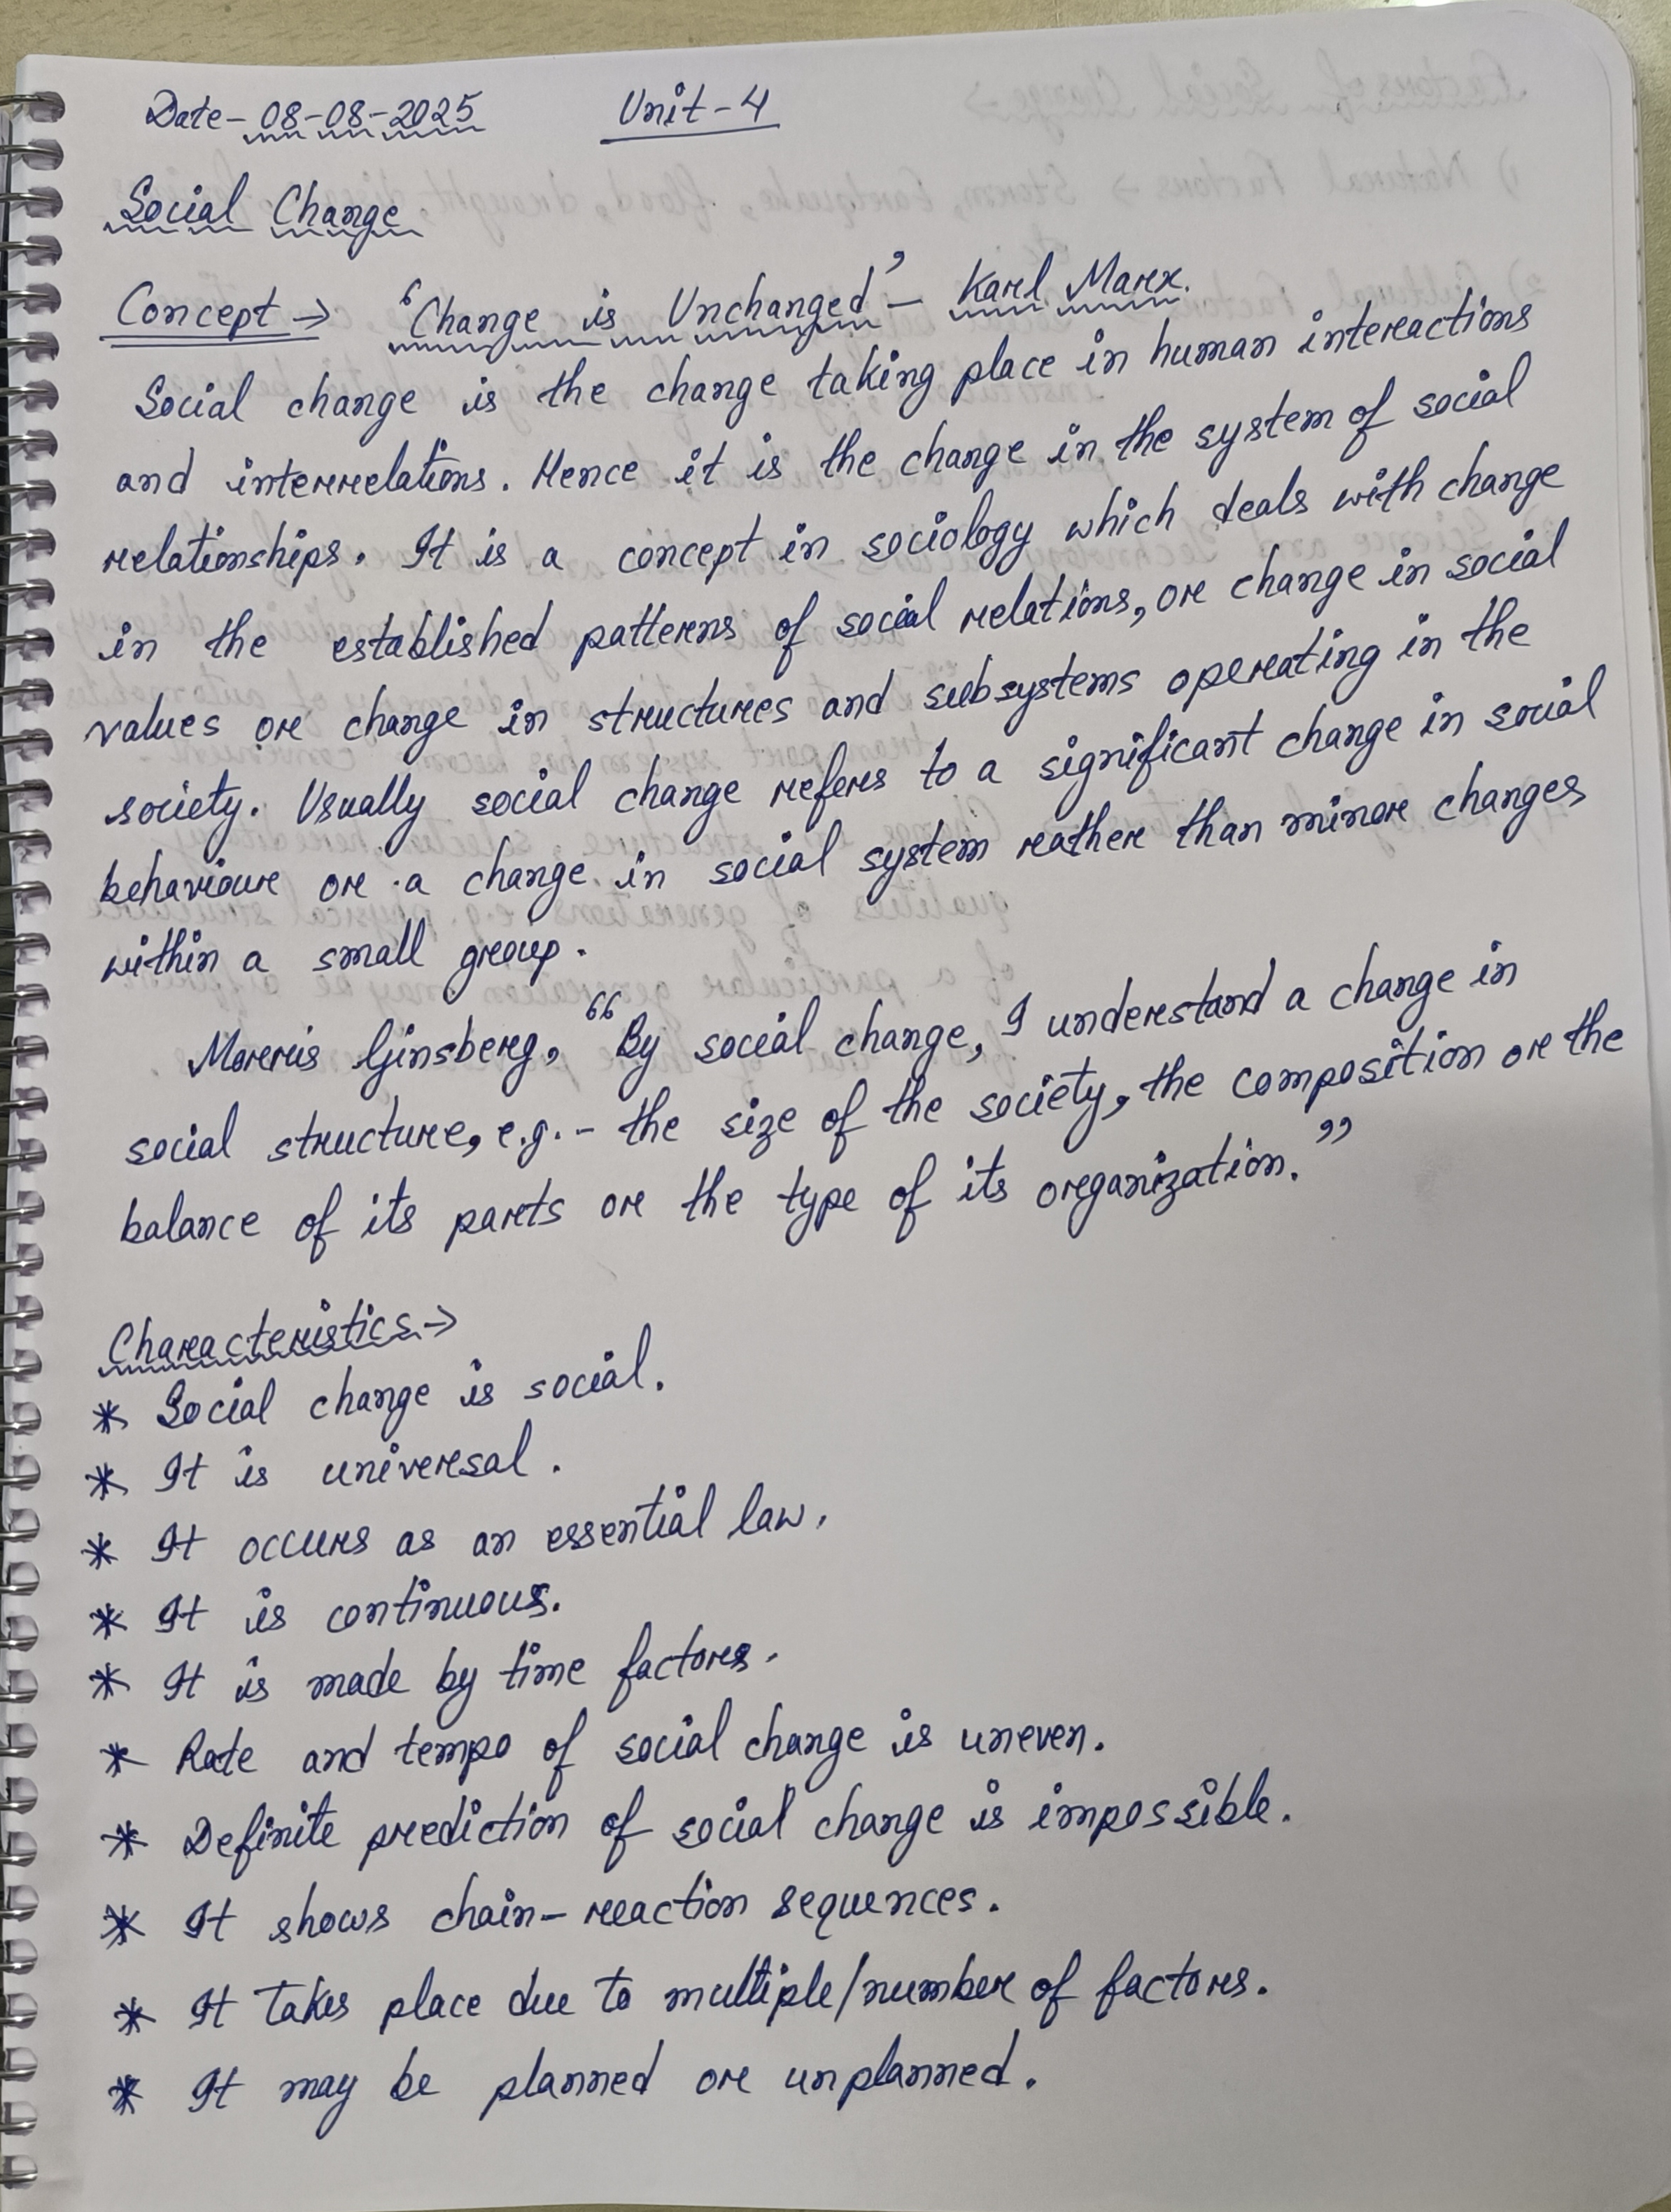 Date - 08-08-2025 Unit - 4
Social Change
Concept → ‘Change is Unchanged’ – Karl Marx.
Social change is the change taking place in human interactions
and interrelations. Hence it is the change in the system of social
relationships. It is a concept in sociology which deals with change
in the established patterns of social relations, or change in social
values or change in structures and subsystems operating in the
society. Usually social change refers to a significant change in social
behaviour or a change in social system rather than minor changes
within a small group.
Morris Ginsberg, “By social change, I understand a change in
social structure, e.g. - the size of the society, the composition or the
balance of its parts or the type of its organization.”
Characteristics →
* Social change is social.
* It is universal.
* It occurs as an essential law.
* It is continuous.
* It is made by time factors.
* Rate and tempo of social change is uneven.
* Definite prediction of social change is impossible.
* It shows chain-reaction sequences.
* It takes place due to multiple/number of factors.
* It may be planned or unplanned.